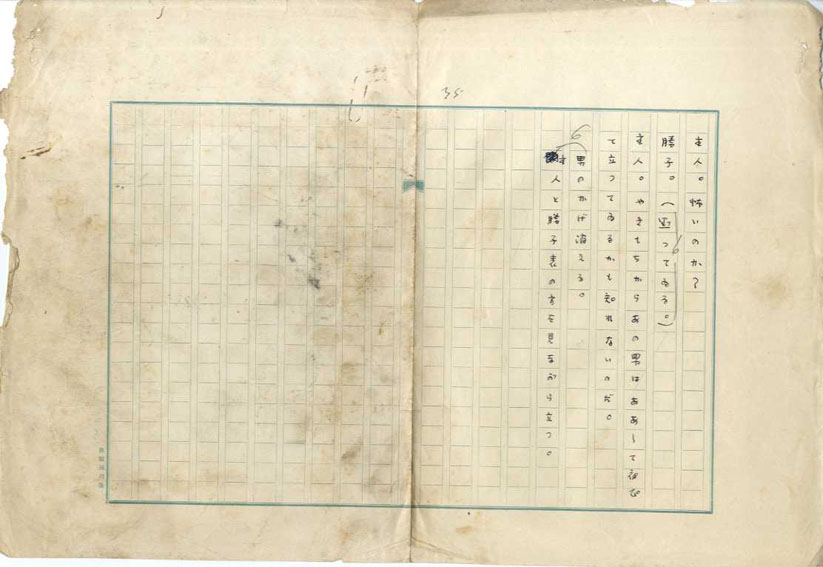 35
主人。怖いのか?
勝子。(黙つてゐる。)
主人。やきもちからあの男はああして
て立つてゐるかも知れないのだ。
男のかげ消える。
主人と勝子表の方を見ながら立つ。